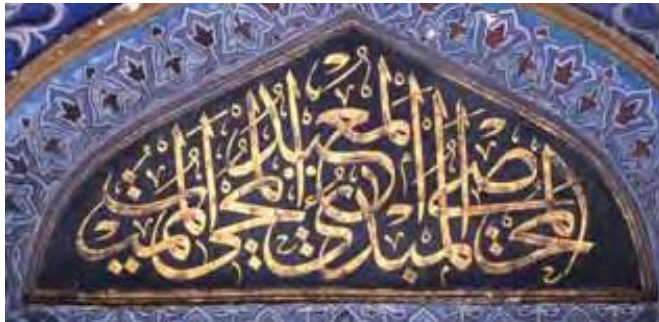 المحصي المبدئ المعيد المحيي المميت